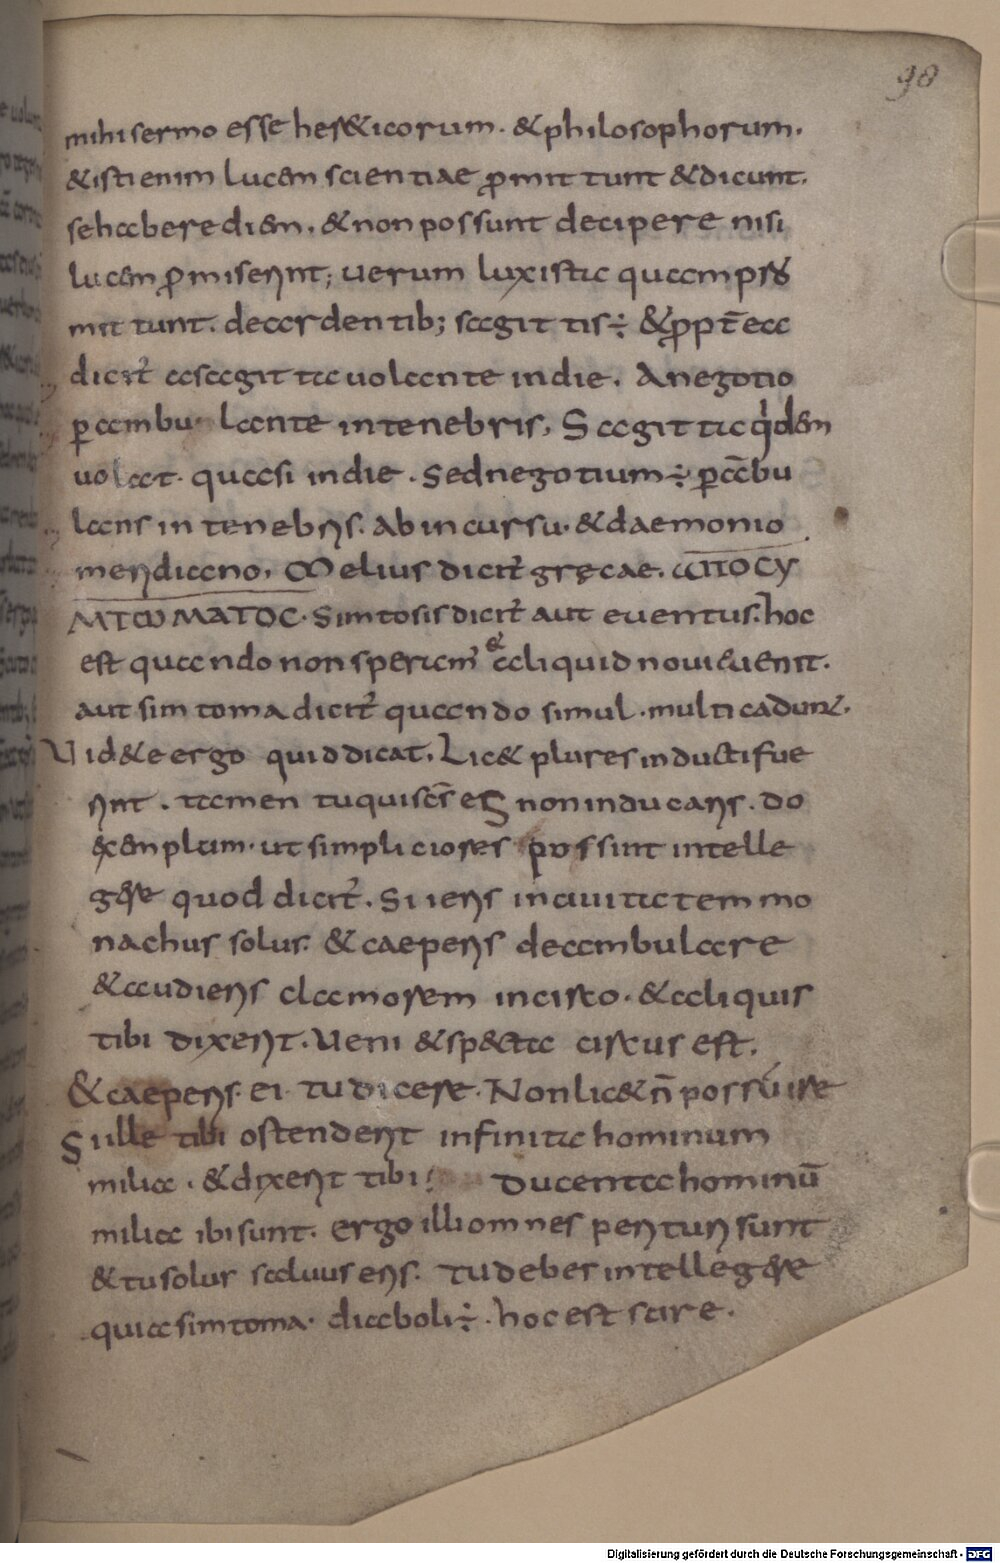 98
mihi sermo esse her&icorum. & philosophorum.
& isti enim lucem scientiae ꝓmittunt & dicunt.
se habere diem. & non possunt decipere nisi
lucem ꝓmiserint; uerum lux ista quam
mittunt. de ardentib; sagittis ÷ & ꝓpt̄ea
dicit̉ a sagitta uolante in die. A negotio
ꝑambulante in tenebris. Sagitta qͥdem
uolat. quasi in die. Sed negotium ÷ ꝑābu
lans in tenebris. Ab incursu. & daemonio
meridiano. Melius dicit̉ gręcae.
ΜΤΩΜΑΤΟС. Simtosis dicit̉ aut euentus. hoc
est quando non speratem̉ & aliquid noui euenit.
aut simtoma dicit̉ quando simul. multi cadunt̉.
Uid&e ergo quid dicat. Lic& plures inducti fue
rint. tamen tu qui scs̄ es non inducaris. do
exemplum. ut simpliciores possint intelle
gere quod dicit̉. Si ieris in ciuitatem mo
nachus solus. & caeperis deambulare
& audieris clamorem in circo. & aliquis
tibi dixerit. Ueni & sp&ta circus est.
& caeperis ei tu dicere. Non lic& n̄ possū ire
Si ille tibi ostenderit infinita hominum
milia. & dixerit tibi ducenta hominū
milia ibi sunt. ergo illi omnes perituri sunt
& tu solus saluus eris. Tu debes intellegere
quia simtoma. diaboli ÷. hoc est scire.
Digitalisierung gefördert durch die Deutsche Forschungsgemeinschaft - DFG